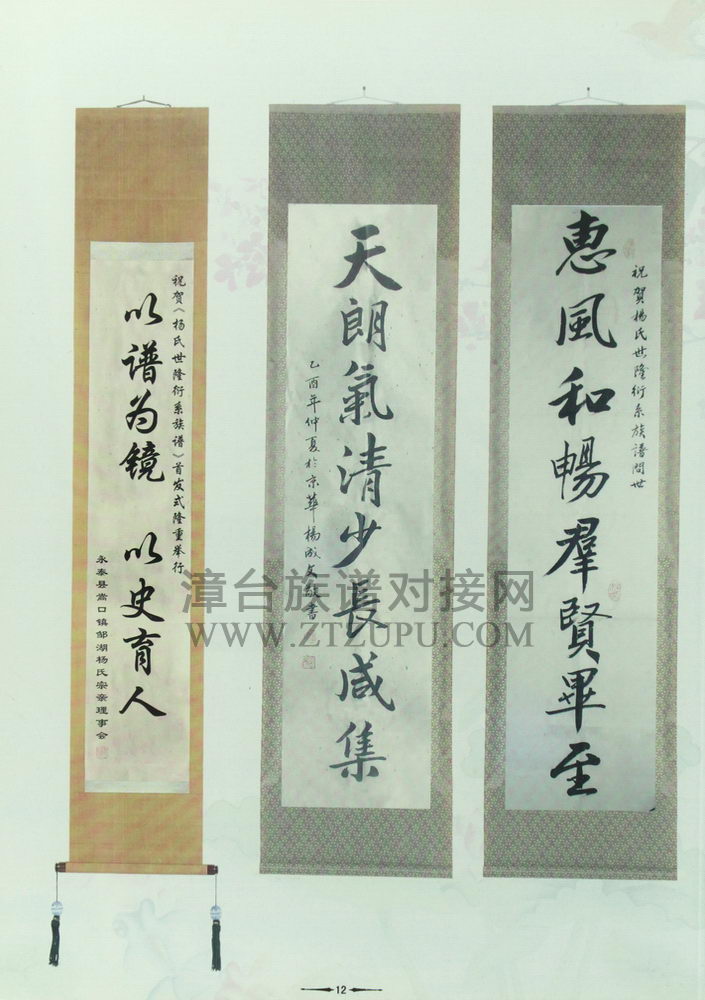 祝賀楊氏世隆衍系族譜問世
惠風和暢羣賢畢至
天朗氣清少長咸集
乙酉年仲夏於京華楊成文敬書
祝贺《杨氏世隆衍系族谱》首发式隆重举行
以谱为镜 以史育人
永泰县嵩口镇邹湖杨氏宗亲理事会
漳台族谱对接网
WWW.ZTZUPU.COM
12